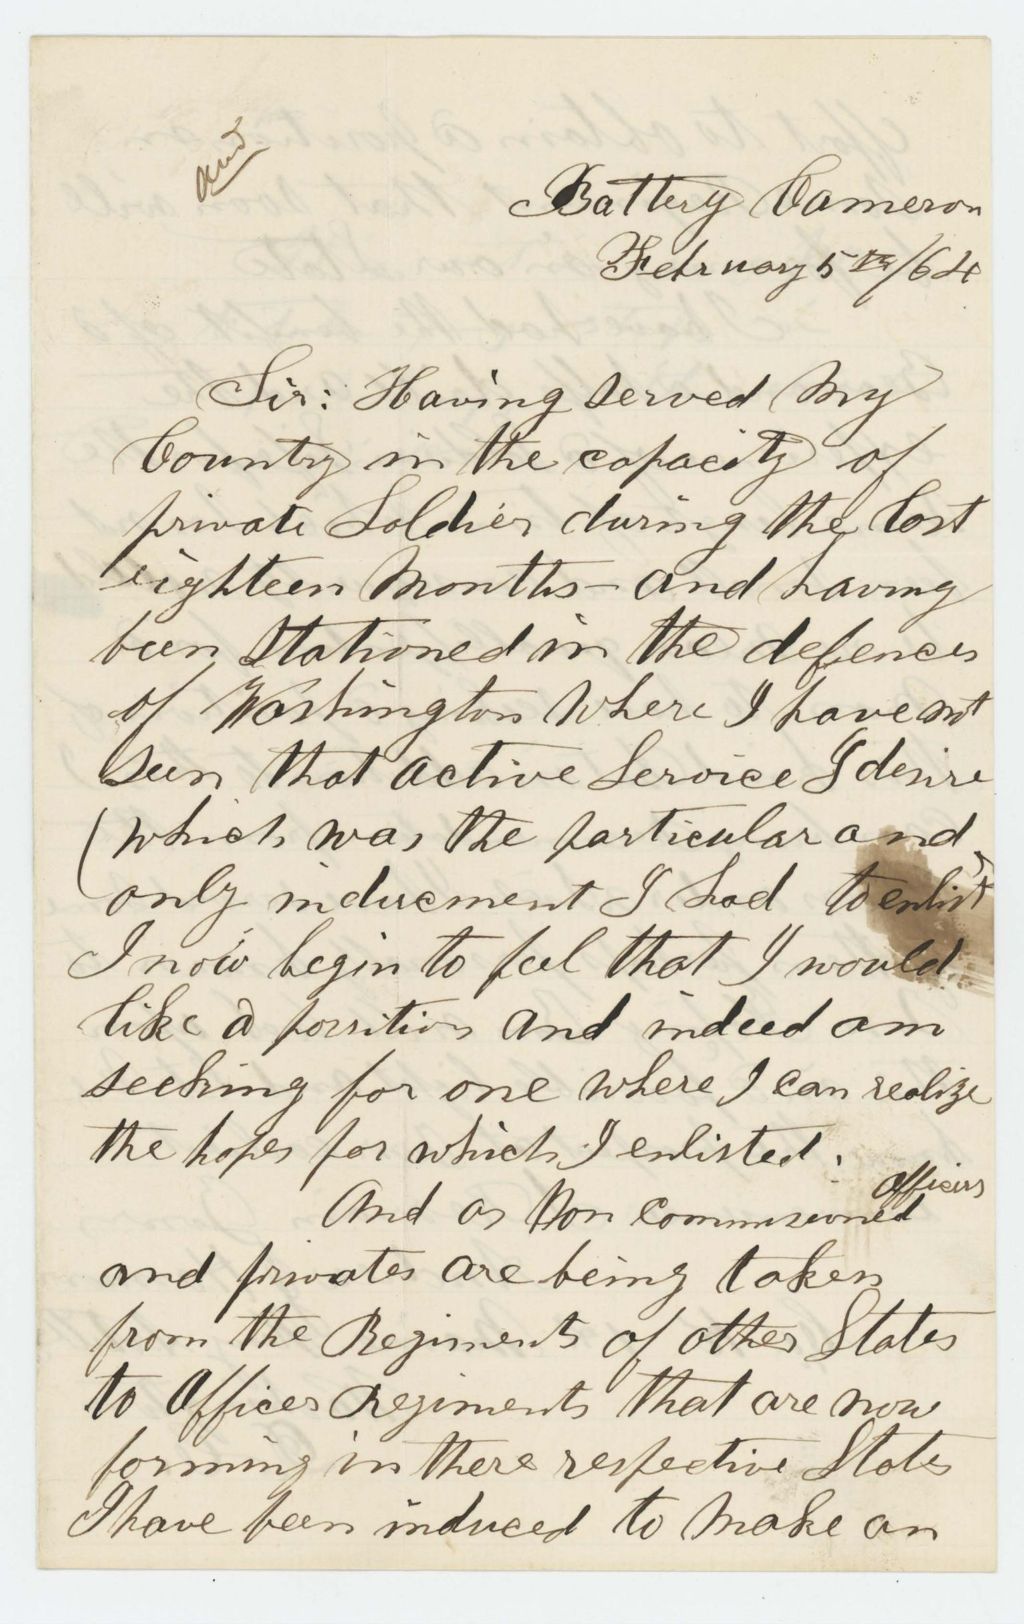 and
Battery Cameron
February 5th/64
Sir: Having served My
Country in the capacity of
private Soldier during the last
eighteen Months - and having
been Stationed in the defences
of Washington Where I have not
seen that active Service I desire
(which was the particular and
only inducement I had to enlist)
I now begin to feel that I would
like a possition and indeed am
seeking for one where I can realize
the hopes for which I enlisted.
And as Non Commissioned Officers
and privates are being taken
from the Regiments of other States
to Officer Regiments that are now
forming in there respective States
I have been induced to Make an